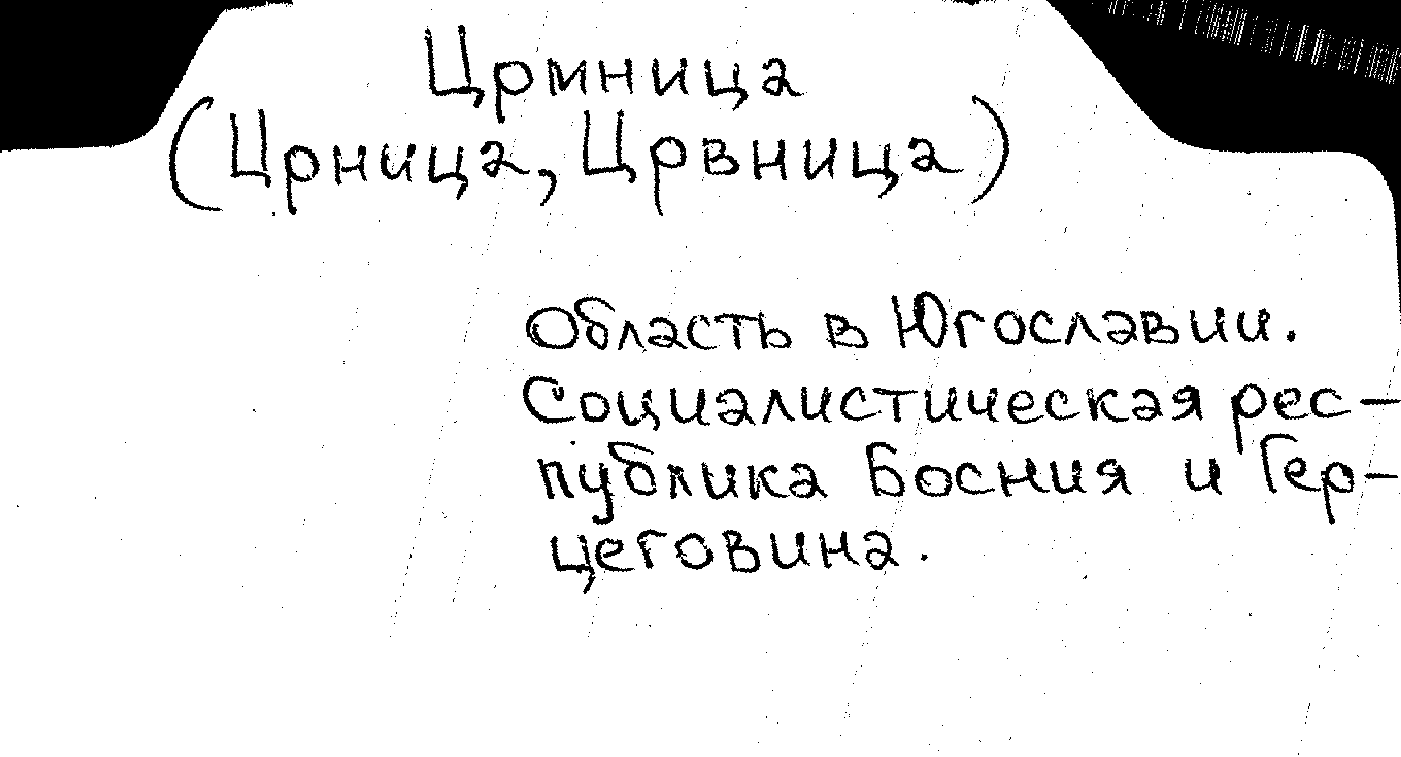 Црмница
(Црница, Црвница)
Область в Югославии.
Социалистическая рес-
публика Босния и Гер-
цеговина.